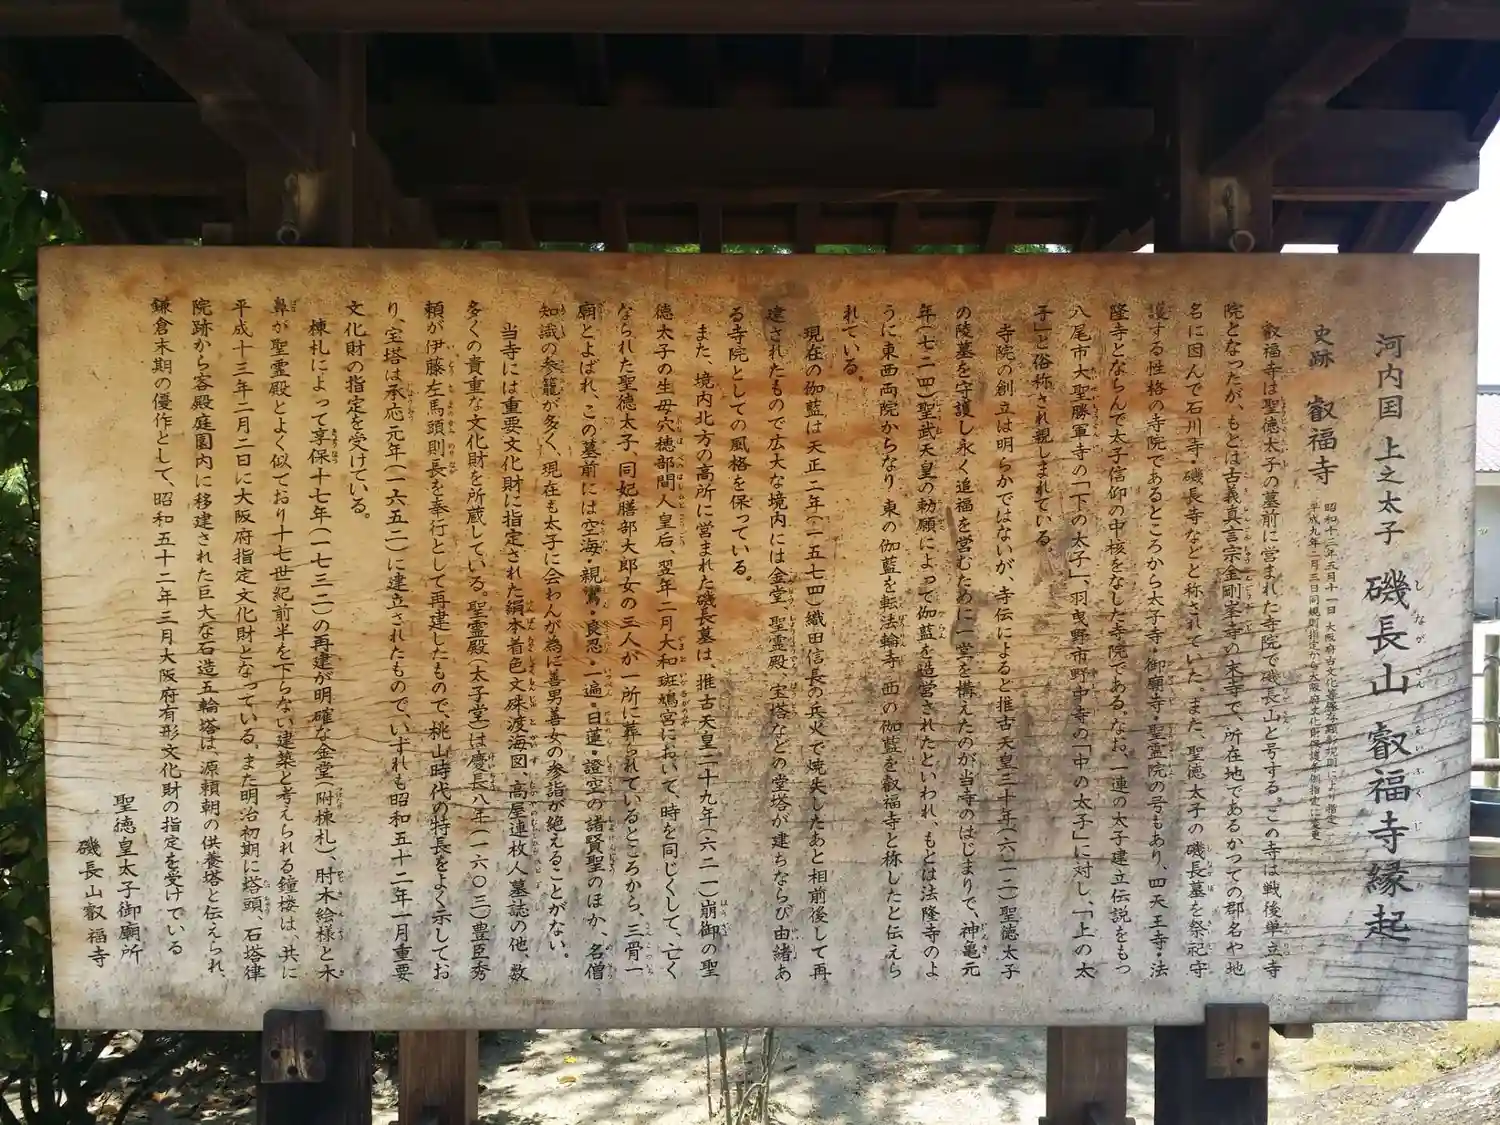 河内国 上之太子 磯長山 叡福寺縁起
史跡 叡福寺
叡福寺は聖徳太子の墓前に営まれた寺院で磯長山と号する。この寺は戦後単立寺
院となったが、もとは古義真言宗金剛峯寺の末寺で、所在地であるかつての郡名や地
名に因んで石川寺・磯長寺などと称されていた。また、聖徳太子の磯長墓を祭祀守
護する性格の寺院であるところから太子寺・御廟寺・聖霊院の号もあり、四天王寺・法
隆寺とならんで太子信仰の中核をなした寺院である。なお、一連の太子建立伝説をもつ
八尾市大聖勝軍寺の「下の太子」、羽曳野市野中寺の「中の太子」に対し、「上の太
子」と俗称され親しまれている
寺院の創立は明らかではないが、寺伝によると推古天皇三十年(六二二)聖徳太子
の陵墓を守護し永く追福を営むために一堂を構えたのが当寺のはじまりで、神亀元
年(七二四)聖武天皇の勅願によって伽藍を造営されたといわれ、もとは法隆寺のよ
うに東西両院からなり、東の伽藍を転法輪寺、西の伽藍を叡福寺と称したと伝えら
れている。
現在の伽藍は天正二年(一五七四)織田信長の兵火で焼失したあと相前後して再
建されたもので広大な境内には金堂、聖霊殿、宝塔などの堂塔が建ちならび由緒あ
る寺院としての風格を保っている。
また、境内北方の高所に営まれた磯長墓は、推古天皇二十九年(六二一)崩御の聖
徳太子の生母穴穂部間人皇后、翌年二月大和斑鳩宮において、時を同じくして、亡く
なられた聖徳太子、同妃膳部大郎女の三人が一所に葬られているところから、三骨一
廟とよばれ、この墓前には空海・親鸞・良忍・一遍・日蓮・證空の諸賢聖のほか、名僧
知識の参籠が多く、現在も太子に会わんが為に善男善女の参詣が絶えることがない。
当寺には重要文化財に指定された絹本着色文殊渡海図、高屋連枚人墓誌の他、数
多くの貴重な文化財を所蔵している。聖霊殿(太子堂)は慶長八年(一六〇三)豊臣秀
頼が伊藤左馬頭則長を奉行として再建したもので、桃山時代の特長をよく示してお
り、宝塔は承応元年(一六五二)に建立されたもので、いずれも昭和五十二年一月重要
文化財の指定を受けている。
棟札によって享保十七年(一七三二)の再建が明確な金堂(附棟札)、肘木絵様と木
鼻が聖霊殿とよく似ており十七世紀前半を下らない建築と考えられる鐘楼は、共に
平成十三年二月二日に大阪府指定文化財となっている。また明治初期に塔頭、石塔律
院跡から客殿庭園内に移建された巨大な石造五輪塔は、源頼朝の供養塔と伝えられ、
鎌倉末期の優作として、昭和五十二年三月大阪府有形文化財の指定を受けている
聖徳皇太子御廟所
磯長山叡福寺